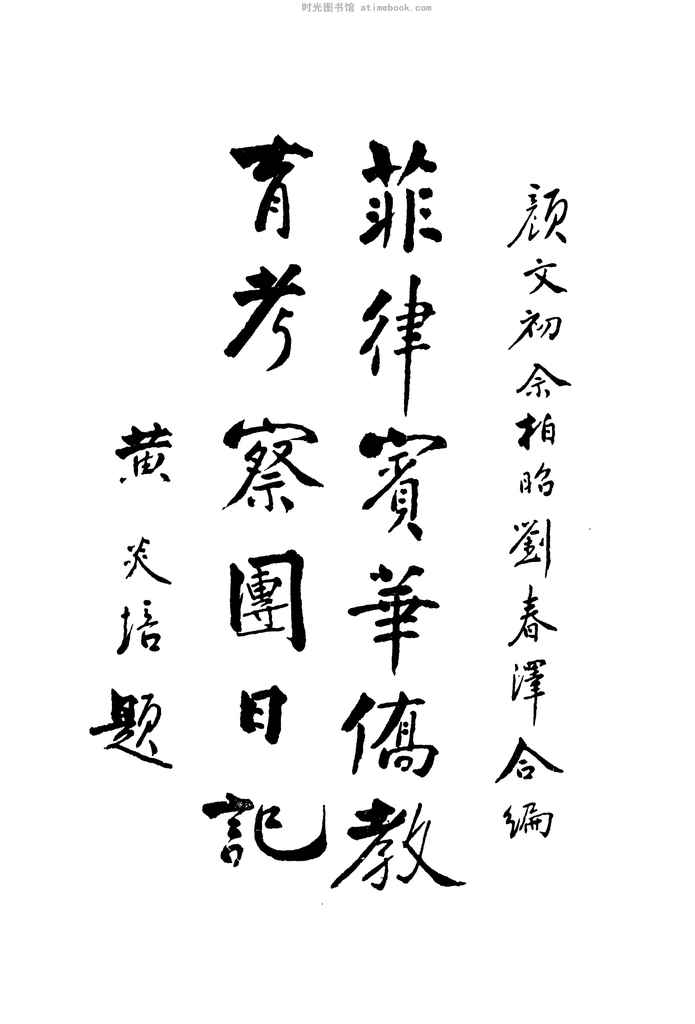 时光图书馆 atimebook.com
顏文初佘柏昭劉春澤合編
菲律賓華僑教
育考察團日記
黄炎培題